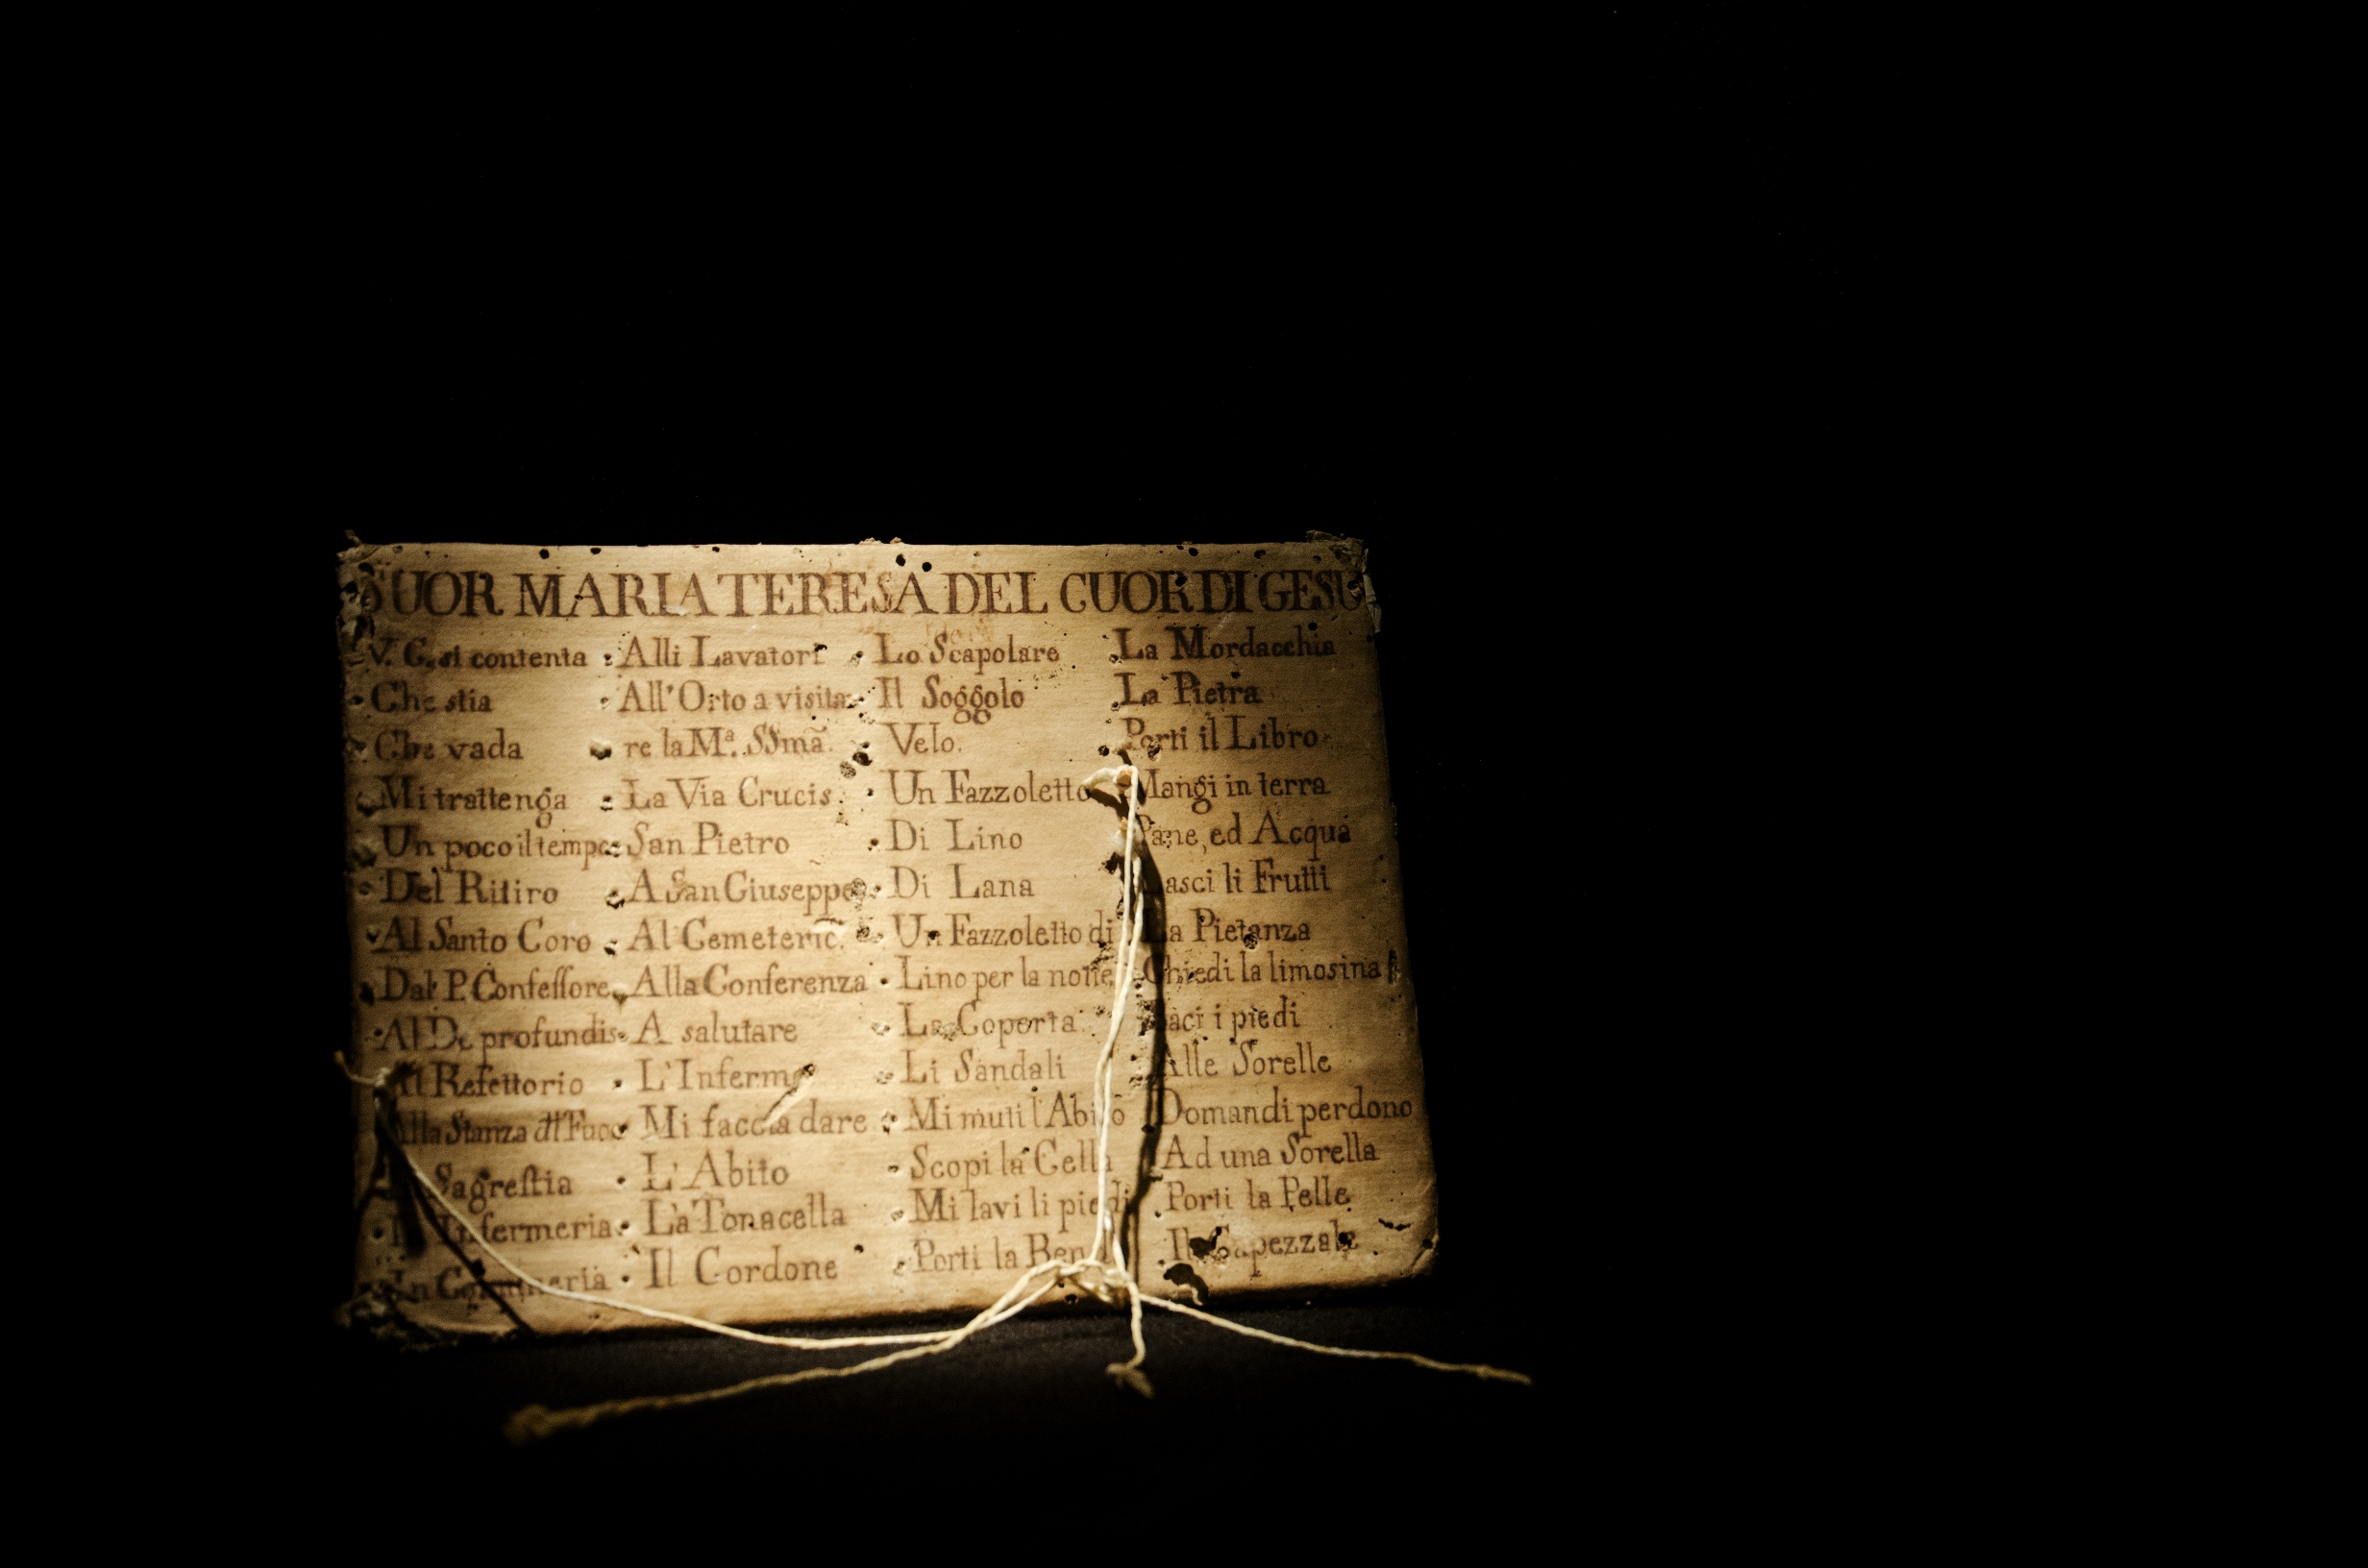 SUOR MARIA TERESA DEL CUOR DI GESU
V. C. si contenta
Che stia
Che vada
Mi trattenga
Un poco il tempo
Del Ritiro
Al Santo Coro
Dal P. Confessore
Al De profundis
Al Refettorio
Alla Stanza dl Fuoco
Sagrestia
Infermeria
In
Alli Lavatori
All'Orto a visita
re la Mª. SSmã.
La Via Crucis
San Pietro
A San Giuseppe
Al Cemeterio
Alla Conferenza
A salutare
L'Inferme
Mi faccia dare
L'Abito
La Tonacella
Il Cordone
Lo Scapolare
Il Soggolo
Velo.
Un Fazzoletto
Di Lino
Di Lana
Un Fazzoletto di
Lino per la notte
La Coperta
Li Sandali
Mi muti l'Abito
Scopi la Cella
Mi lavi li piedi
Porti la
La Mordacchia
La Pietra
Porti il Libro
Mangi in terra
Pane, ed Acqua
Lasci li Frutti
La Pietanza
Chiedi la limosina
Baci i piedi
Alle Sorelle
Domandi perdono
Ad una Sorella
Porti la Pelle
Il Capezzale